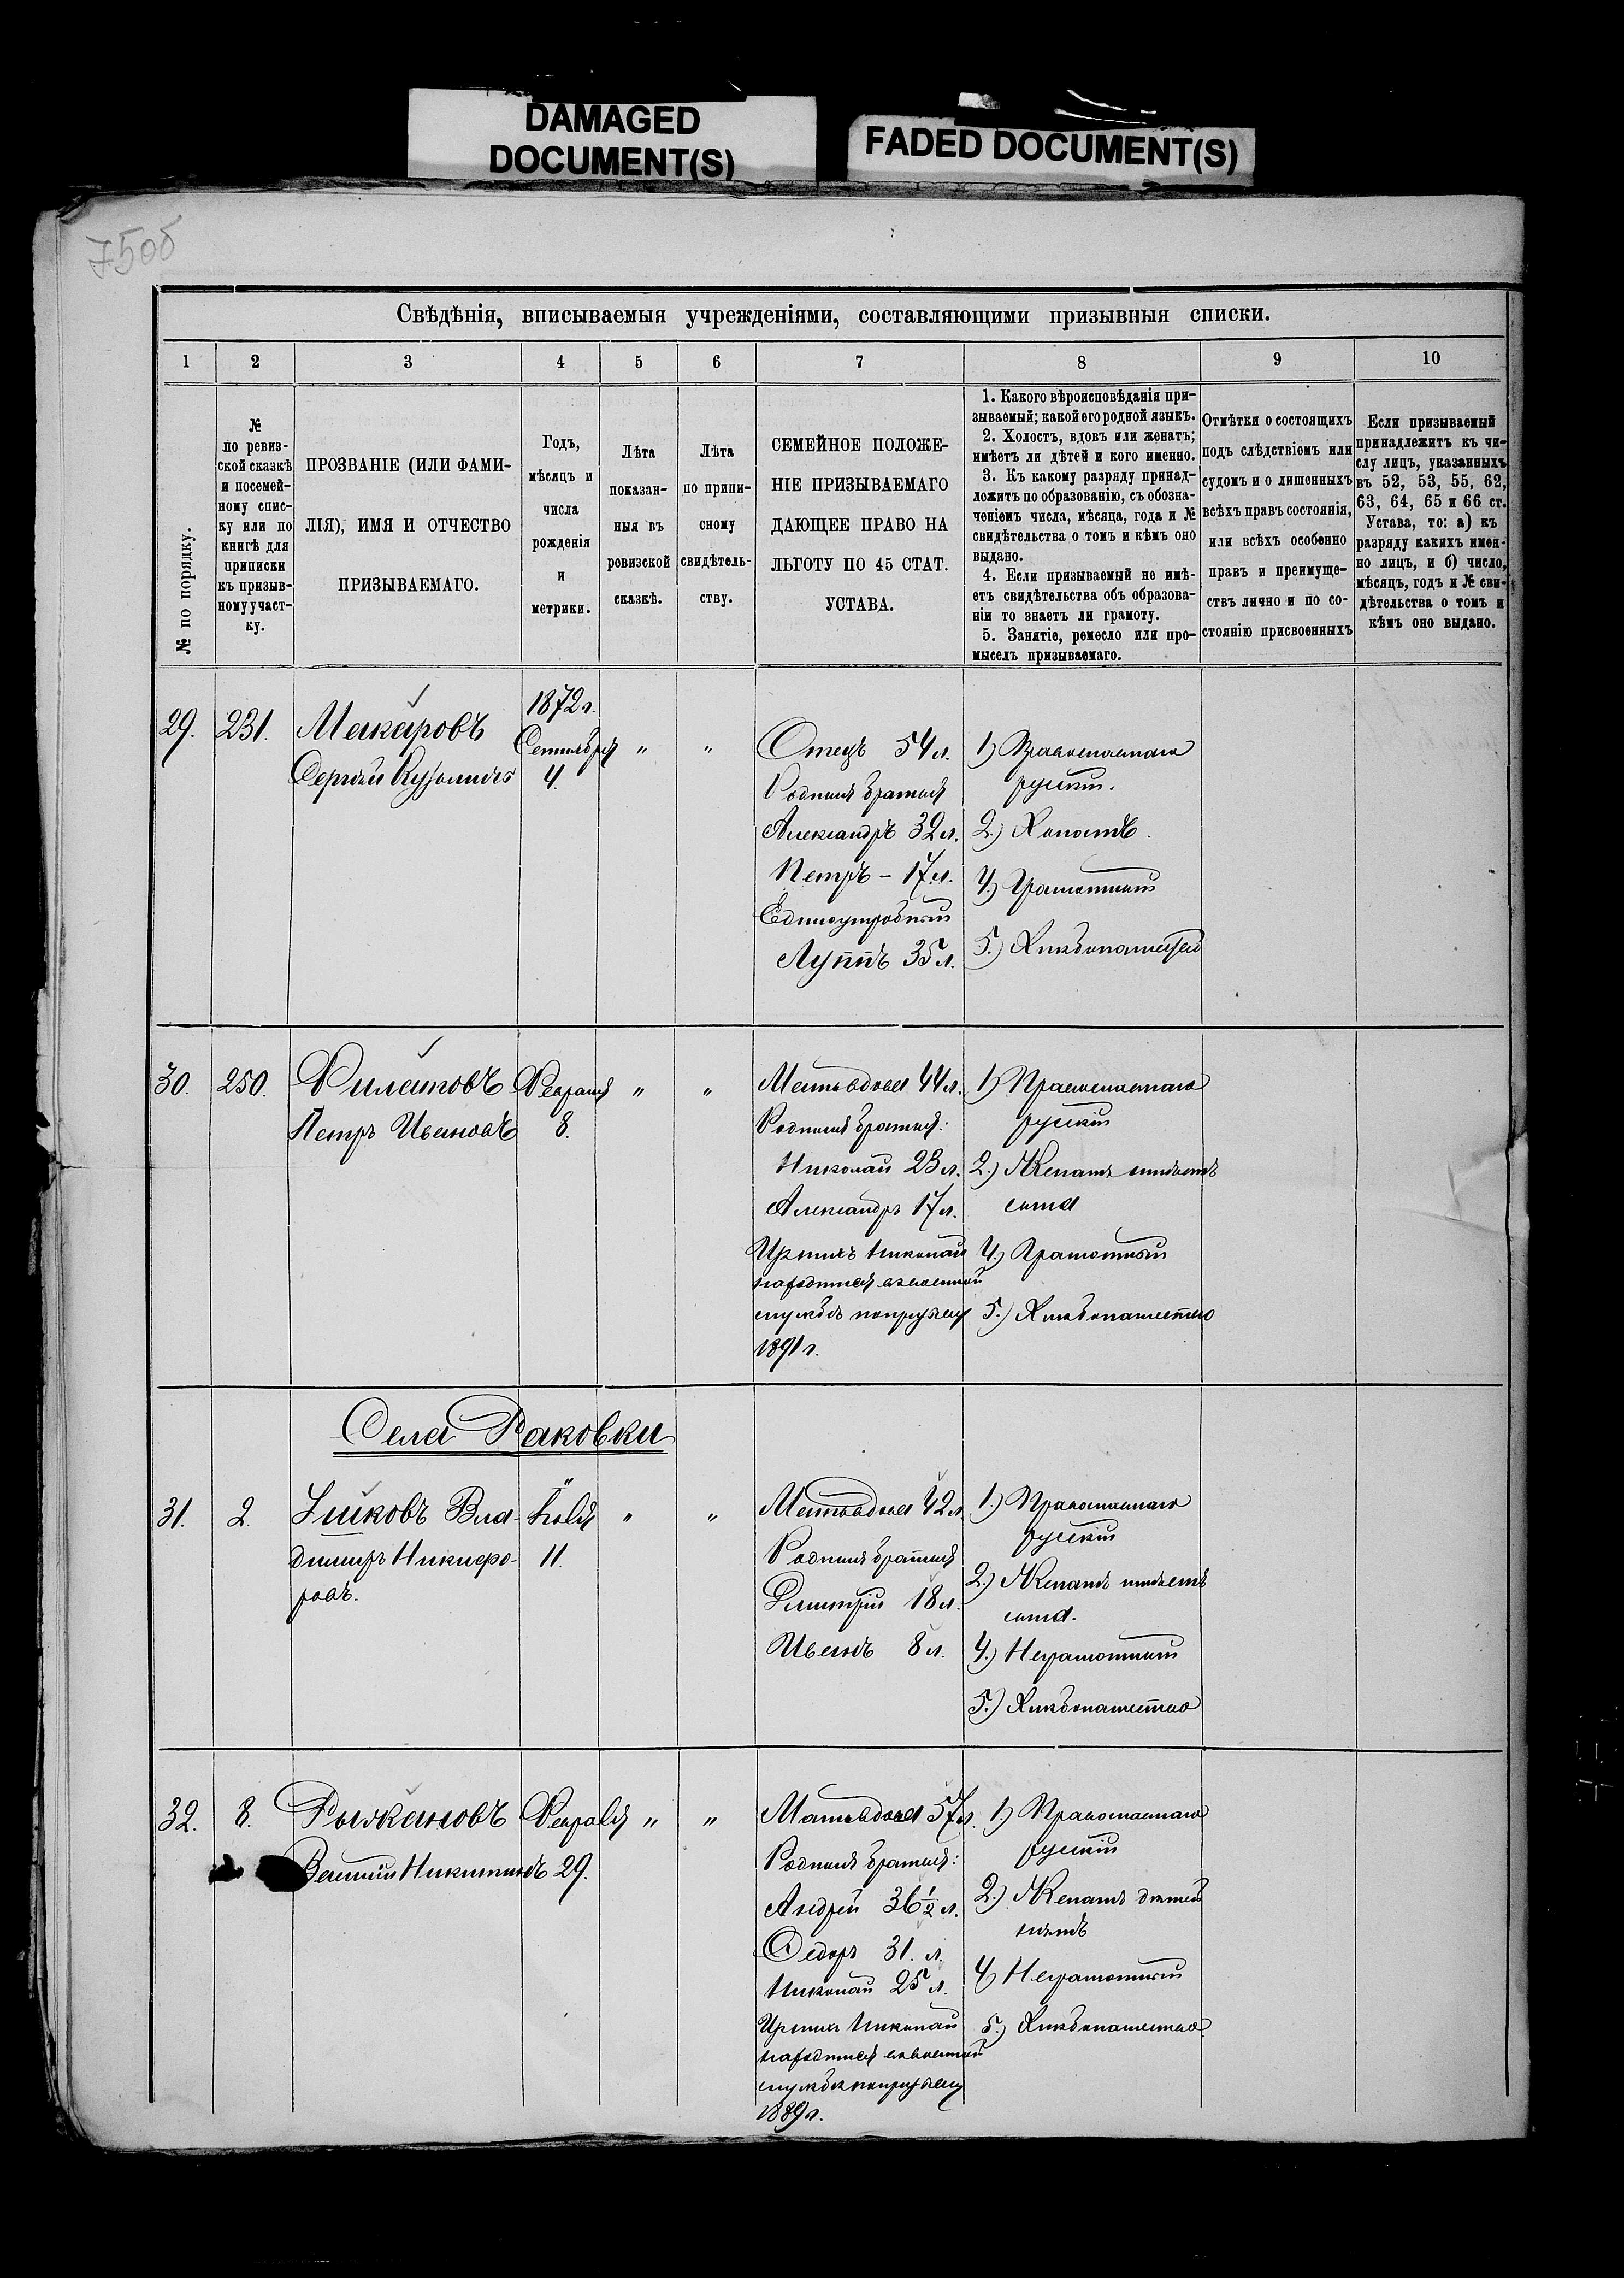 DAMAGED
DOCUMENT(S)
FADED DOCUMENT(S)
750б
Свѣдѣнія, вписываемыя учрежденіями, составляющими призывныя списки.
1 2 3 4 5 6 7 8 9 10
№ по порядку.
№
по ревиз-
ской сказкѣ
и посемей-
ному спис-
ку или по
книгѣ для
приписки
къ призыв-
ному участ-
ку.
ПРОЗВАНІЕ (ИЛИ ФАМИ-
ЛІЯ), ИМЯ И ОТЧЕСТВО
ПРИЗЫВАЕМАГО.
Годъ,
мѣсяцъ и
числа
рожденія
и
метрики.
Лѣта
показан-
ныя въ
ревизской
сказкѣ.
Лѣта
по припи-
сному
свидѣтель-
ству.
СЕМЕЙНОЕ ПОЛОЖЕ-
НІЕ ПРИЗЫВАЕМАГО
ДАЮЩЕЕ ПРАВО НА
ЛЬГОТУ ПО 45 СТАТ.
УСТАВА.
1. Какого вѣроисповѣданія при-
зываемый; какой его родной языкъ.
2. Холостъ, вдовъ или женатъ;
имѣетъ ли дѣтей и кого именно.
3. Къ какому разряду принад-
лежитъ по образованію, съ обозна-
ченіемъ числа, мѣсяца, года и №
свидѣтельства о томъ и кѣмъ оно
выдано.
4. Если призываемый не имѣ-
етъ свидѣтельства объ образова-
ніи то знаетъ ли грамоту.
5. Занятіе, ремесло или про-
мыселъ призываемаго.
Отмѣтки о состоящихъ
подъ слѣдствіемъ или
судомъ и о лишенныхъ
всѣхъ правъ состоянія,
или всѣхъ особенно
правъ и преимуще-
ствъ лично и по со-
стоянію присвоенныхъ
Если призываемый
принадлежитъ къ чи-
слу лицъ, указанныхъ
въ 52, 53, 55, 62,
63, 64, 65 и 66 ст.
Устава, то: а) къ
разряду какихъ имен-
но лицъ, и б) число,
мѣсяцъ, годъ и № сви-
дѣтельства о томъ и
кѣмъ оно выдано.
29.
231.
Макаровъ
Сергѣй Кузьминъ
1872 г.
Сентября
4.
"
"
Отецъ 54 л.
Родныя братья
Александръ 32 л.
Петръ – 17 л.
Единоутробный
Луппъ 35 л.
1) Православнаго
русскій.
2.) Холостъ.
4.) Грамотный
5.) Хлѣбопашество
30.
250.
Филатовъ
Петръ Ивановъ
Февраля
8.
"
"
Мать вдова 44 л.
Родныя братья:
Николай 23 л.
Александръ 17 л.
Изъ нихъ Николай
находится въ военной
службѣ по призыву
1891 г.
1) Православнаго
русскій
2.) Женатъ имѣетъ
сына
4.) Грамотный
5.) Хлѣбопашество
Села Раковки
31.
2.
Вла-
димиръ Никифо-
ровъ.
Іюля
11.
"
"
Мать вдова 42 л.
Родныя братья
Димитрій 18 л.
Иванъ 8 л.
1.) Православнаго
русскій
2.) Женатъ имѣетъ
сына.
4.) Неграмотный
5.) Хлѣбопашество
32.
8.
Рыжкановъ
Никитинъ
Февраля
29.
"
"
Мать вдова 57 л.
Родныя братья:
Андрей 36½ л.
Федоръ 31. л.
Николай 25 л.
Изъ нихъ Николай
находится въ военной
службѣ по призыву
1889 г.
1.) Православнаго
русскій
2.) Женатъ дѣтей
нѣтъ
4) Неграмотный
5.) Хлѣбопашество